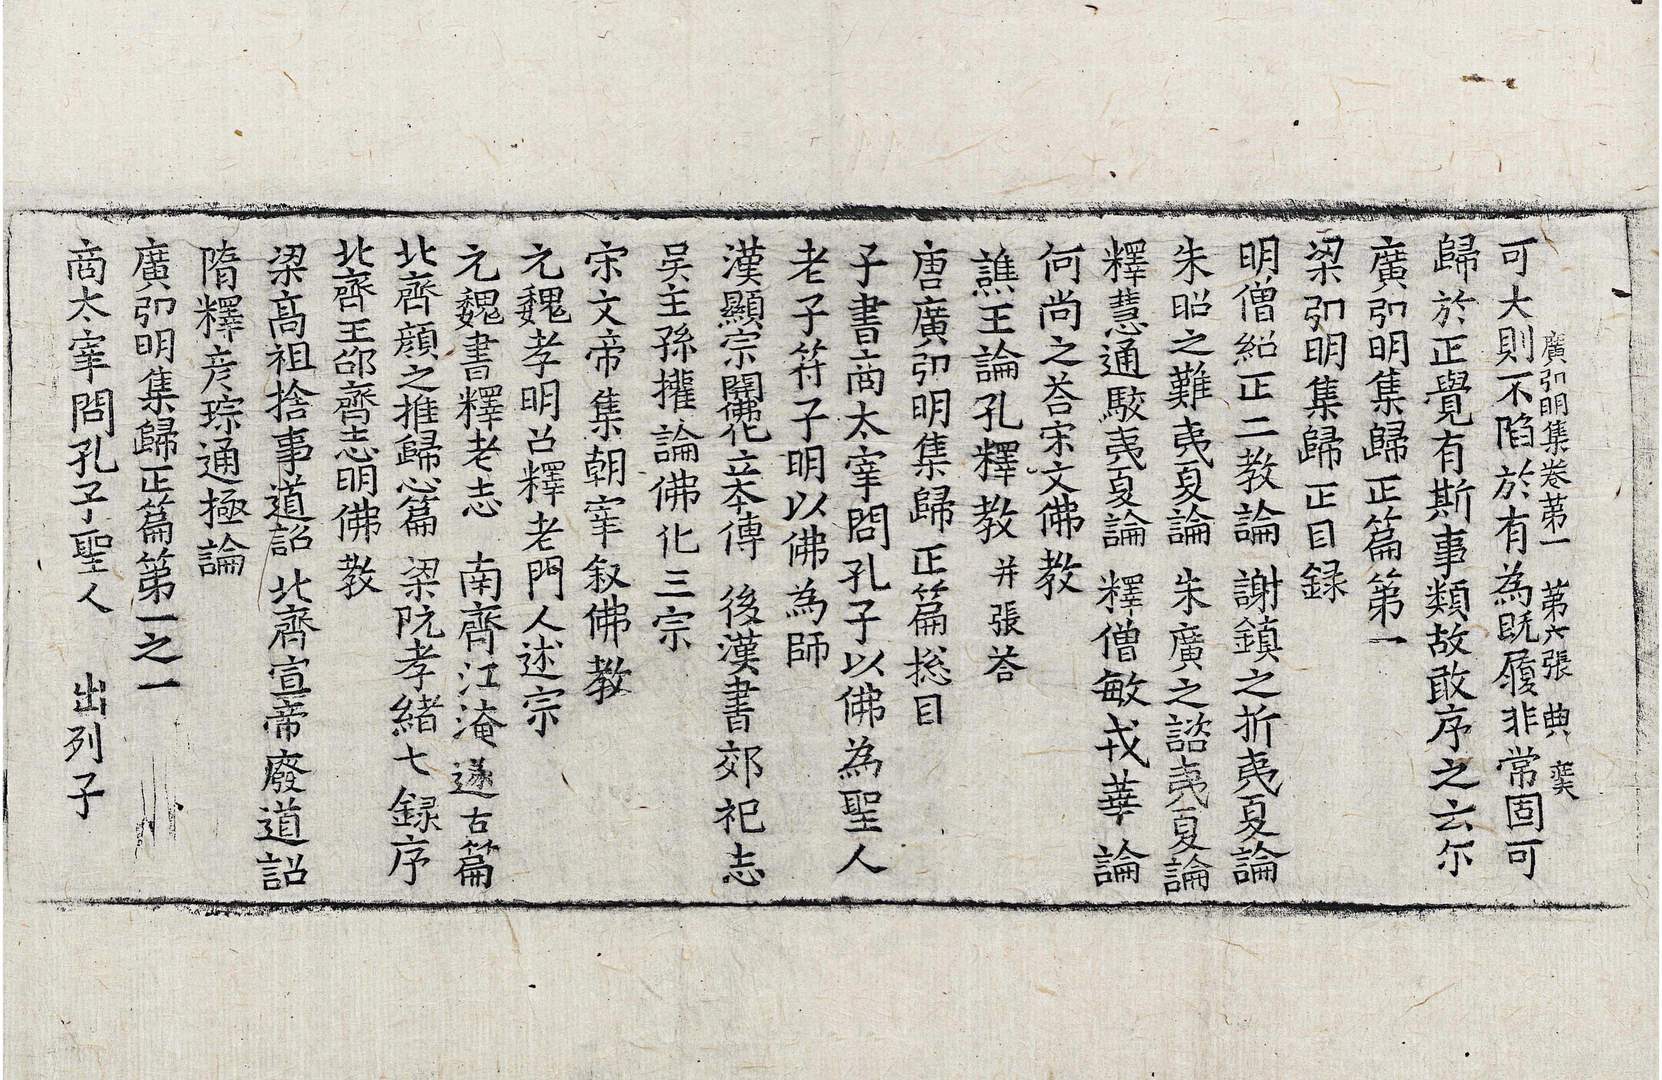 廣弘明集卷第一　第六張　典
可大則不陷於有為旣履非常固可
歸於正覺有斯事類故敢序之云尒
廣弘明集歸正篇第一
梁弘明集歸正目録
明僧紹正二教論　謝鎮之折夷夏論
朱昭之難夷夏論　朱廣之諮夷夏論
釋慧通駮夷夏論　釋僧敏戎華論
何尚之荅宋文佛教
譙王論孔釋教并張荅
唐廣弘明集歸正篇揔目
子書商太宰問孔子以佛為聖人
老子符子明以佛為師
漢顯宗開佛化立本傳　後漢書郊祀志
吴主孫權論佛化三宗
宋文帝集朝宰叙佛教
元魏孝明召釋老門人述宗
元魏書釋老志　南齊江淹遂古篇
北齊顔之推歸心篇　梁阮孝緒七録序
北齊王邵齊志明佛教
梁高祖捨事道詔　北齊宣帝廢道詔
隋釋彦琮通極論
廣弘明集歸正篇第一之一
商太宰問孔子聖人　出列子